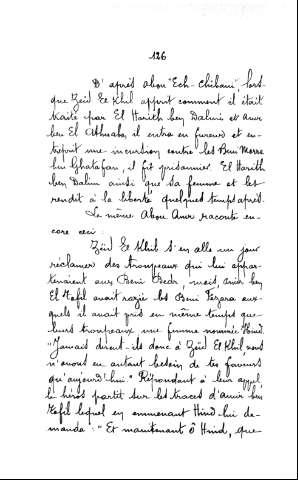 126
D'après abou "Ech-Chibani" lors-
que Zeïd El Khil apprit comment il était
traité par El Harith ben Dalim et Amr
ben El Athnaba, il entra en fureur et en-
treprit une incursion contre les Beni Morra
ben Ghatafan, il fit prisonnier El Harith
ben Dalim ainsi que sa femme et les
rendit à la liberté quelques temps après.
Le même Abou Amr raconte en-
core ceci :
Zeïd El Khil s'en alla un jour
réclamer des troupeaux qui lui appar-
tenaient aux Beni Bedr, mais, amir ben
El Tofil avait razzié les Beni Fezara aux-
quels il avait pris en même temps que
leurs troupeaux une femme nommée Hind.
"Jamais dirent-ils donc à Zeïd El Khil nous
n'avons eu autant besoin de tes faveurs
qu'aujourd'hui." Répondant à leur appel
le héros partit sur les traces d'amir ben
Tofil lequel en emmenant Hind lui de-
manda : "Et maintenant ô Hind, que-